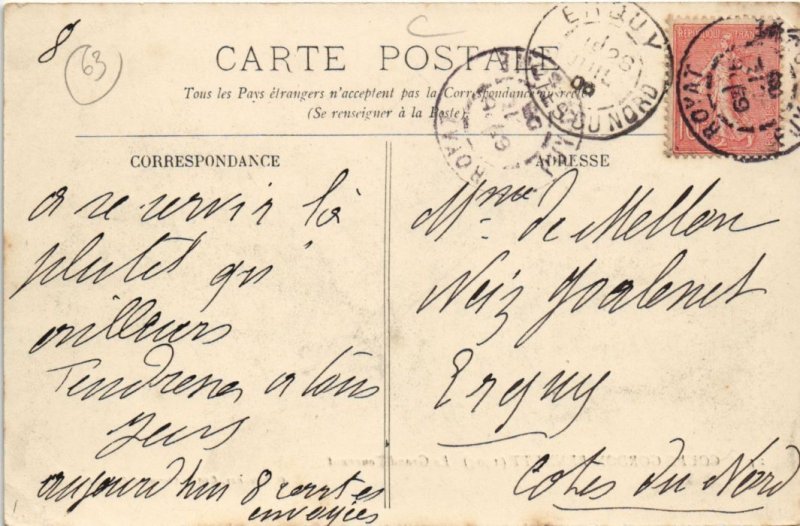 8
63
C
CARTE POSTALE
Tous les Pays étrangers n'acceptent pas la Correspondance au recto
(Se renseigner à la Poste)
ERQUY
26
08
CÔTES-DU-NORD
ROYAT
ROYAT
CORRESPONDANCE
ADRESSE
a se servir là
plutôt qu'
ailleurs
Tendresses a tous
aujourd'hui 8 cartes
envoyées
Mme de Mellon
Erquy
Côtes du Nord